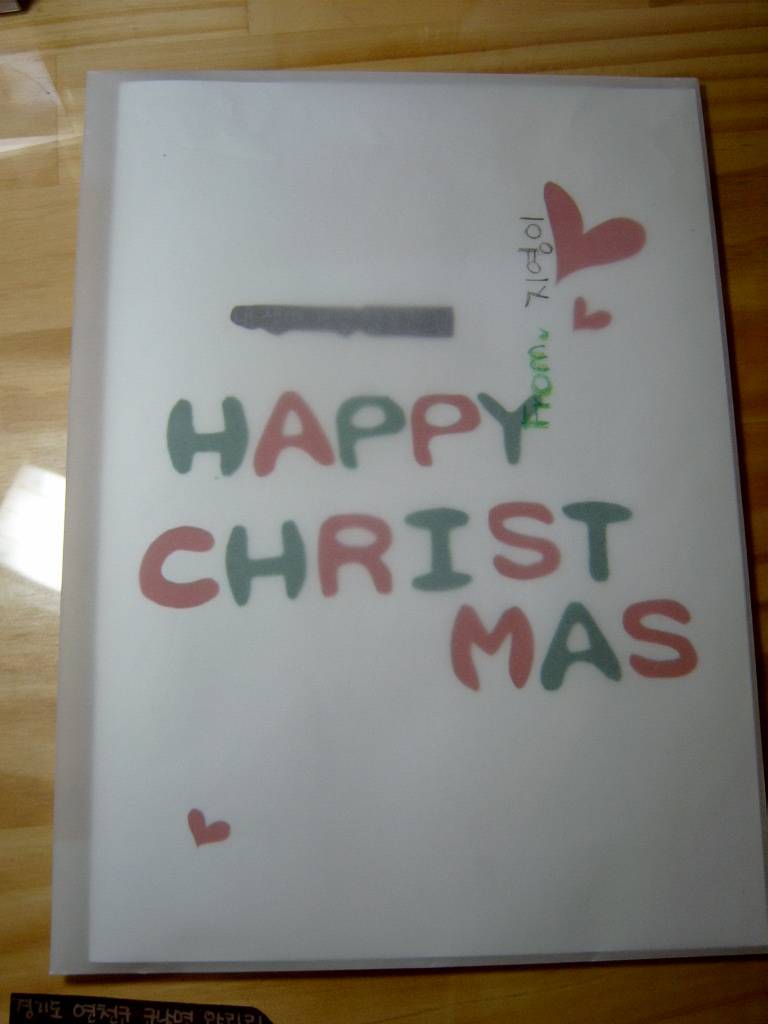 From. 지영이
HAPPY
CHRIST
MAS
경기도 연천군 군남면 왕림리